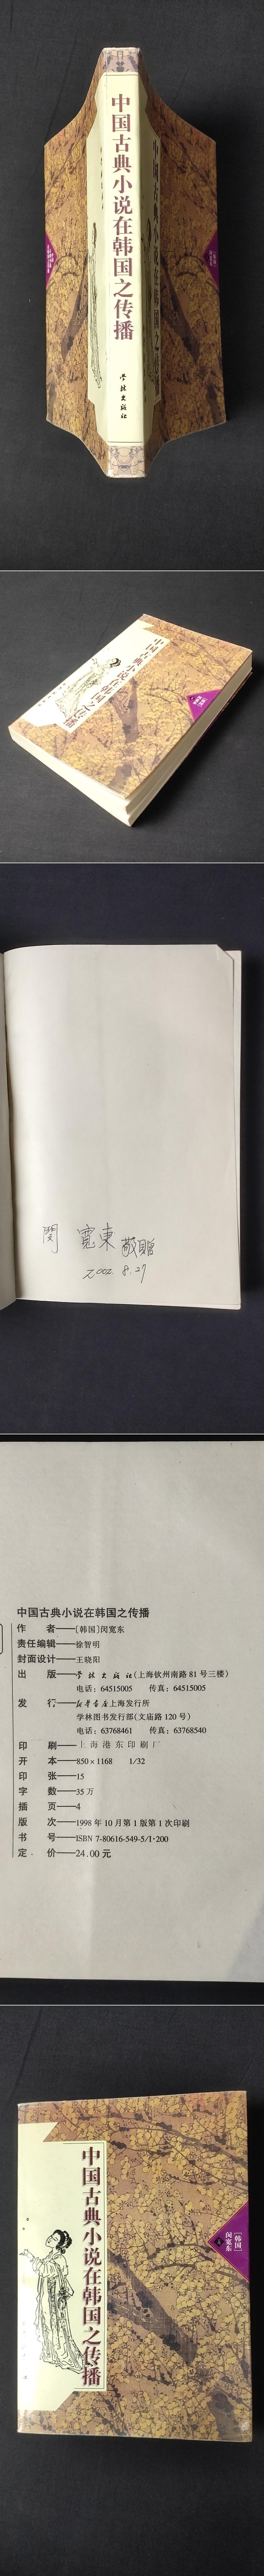 中国古典小说在韩国之传播
学林出版社
中国古典小说在韩国之传播
閔 寬東 敬贈
2002. 8. 27
中国古典小说在韩国之传播
作 者——[韩国]闵宽东
责任编辑——徐智明
封面设计——王晓阳
出 版——学林出版社(上海钦州南路81号三楼)
电话：64515005 传真：64515005
发 行——新华书店上海发行所
学林图书发行部(文庙路120号)
电话：63768461 传真：63768540
印 刷——上海港东印刷厂
开 本——850×1168 1/32
印 张——15
字 数——35万
插 页——4
版 次——1998年10月第1版第1次印刷
书 号——ISBN 7-80616-549-5/I·200
定 价——24.00元
中国古典小说在韩国之传播
[韩国]
闵宽东